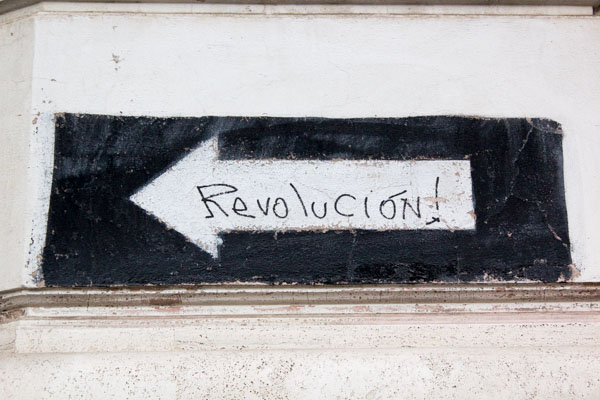 Revolución!